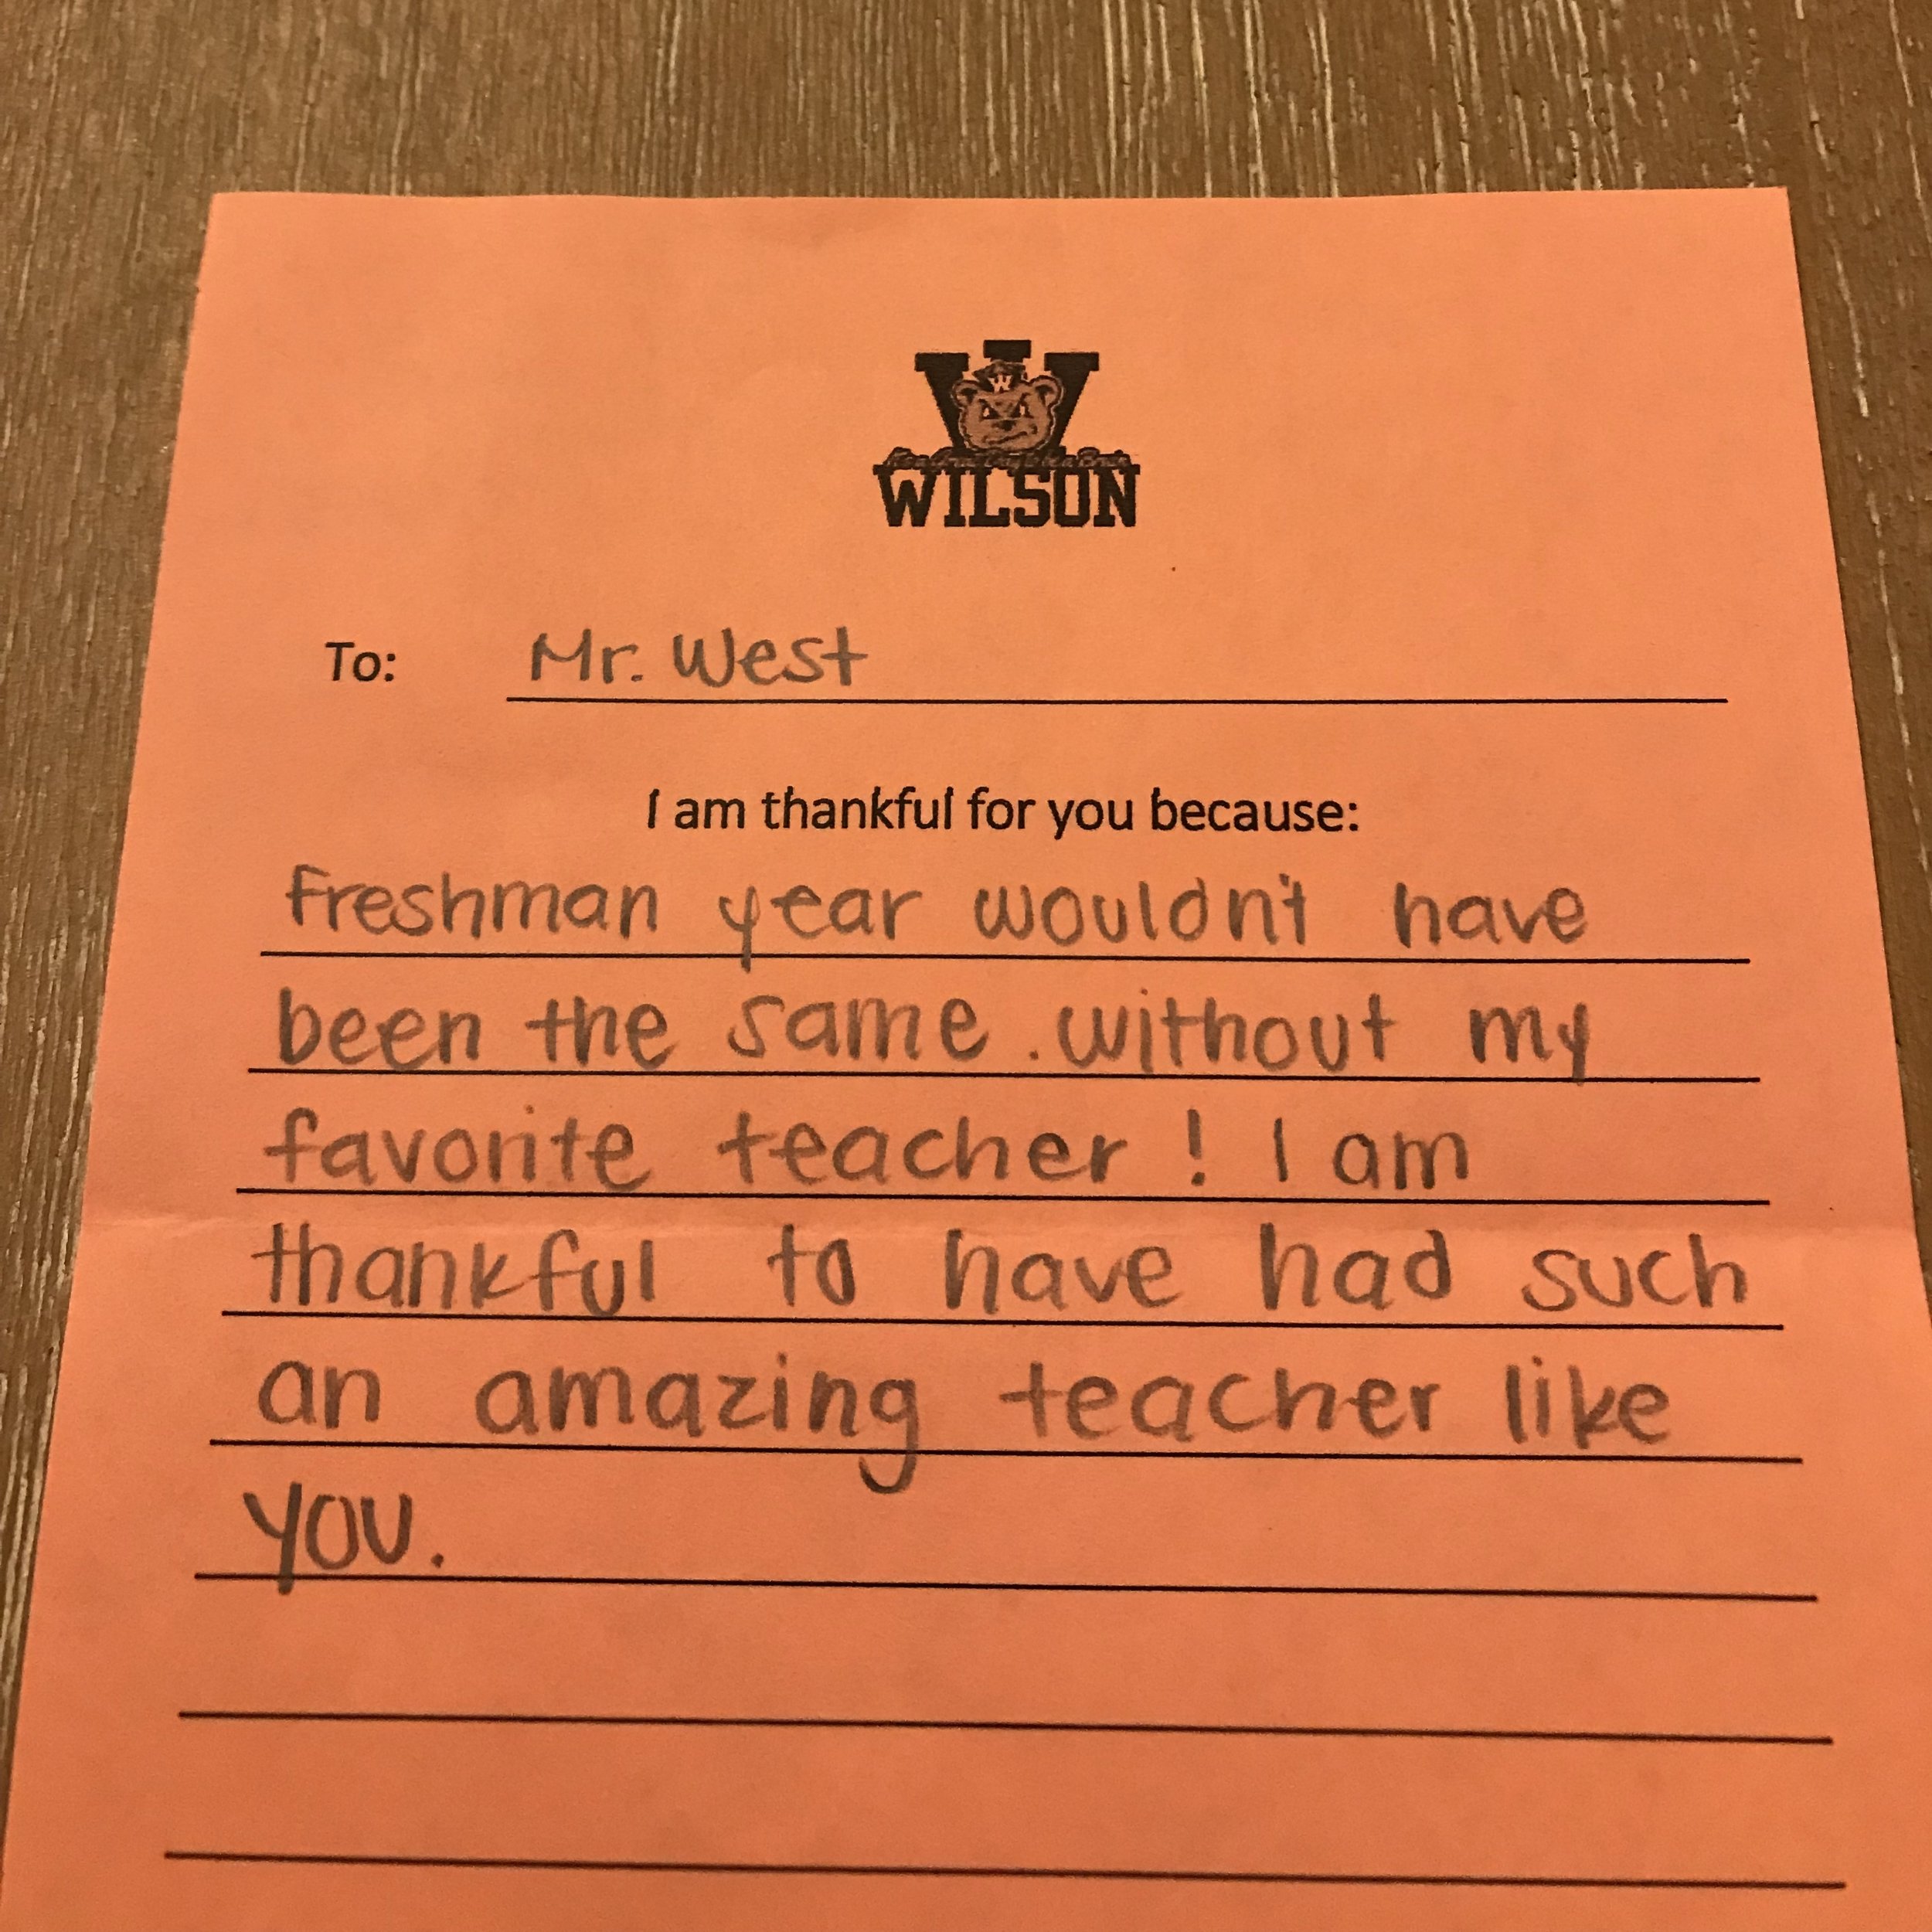 W
WILSON
To: Mr. West
I am thankful for you because:
Freshman year wouldn't have
been the same . without my
favorite teacher ! I am
thankful to have had such
an amazing teacher like
you.